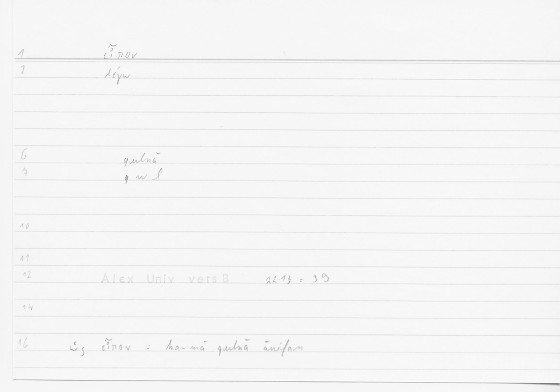 1 εἶπον
2 λέγω
6 qulnā
7 q w l
10
11
12 Alex Univ vers B 22.13 = 39
14
16 ὡς εἶπον : ka-mā qulnā ānifan